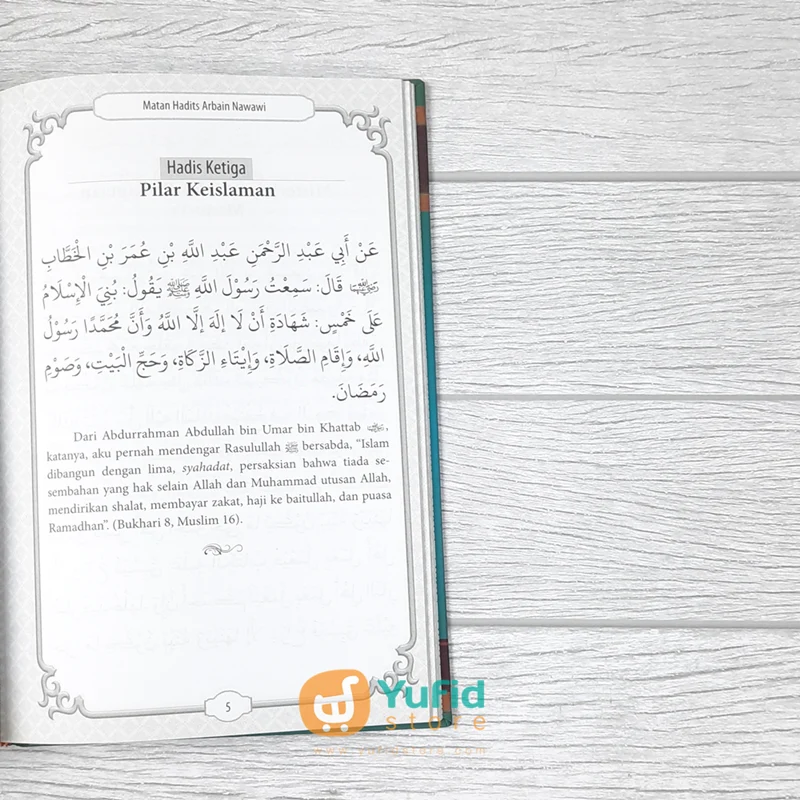 Matan Hadits Arbain Nawawi
Hadis Ketiga
Pilar Keislaman
عَنْ أَبِي عَبْدِ الرَّحْمَنِ عَبْدِ اللَّهِ بْنِ عُمَرَ بْنِ الْخَطَّابِ
قَالَ: سَمِعْتُ رَسُوْلَ اللَّهِ ﷺ يَقُوْلُ: بُنِيَ الْإِسْلَامُ
عَلَى خَمْسٍ: شَهَادَةِ أَنْ لَا إِلَهَ إِلَّا اللَّهُ وَأَنَّ مُحَمَّدًا رَسُوْلُ
اللَّهِ، وَإِقَامِ الصَّلَاةِ، وَإِيْتَاءِ الزَّكَاةِ، وَحَجِّ الْبَيْتِ، وَصَوْمِ
رَمَضَانَ.
Dari Abdurrahman Abdullah bin Umar bin Khattab ,
katanya, aku pernah mendengar Rasulullah ﷺ bersabda, “Islam
dibangun dengan lima, syahadat, persaksian bahwa tiada se-
sembahan yang hak selain Allah dan Muhammad utusan Allah,
mendirikan shalat, membayar zakat, haji ke baitullah, dan puasa
Ramadhan”. (Bukhari 8, Muslim 16).
5
Yufid
store
www.yufidstore.com